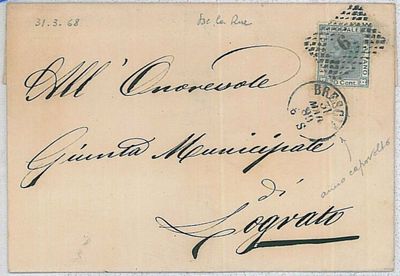 31.3.68 De la Rue
POSTALE ITALIANO
Cent
6
BRESC
31
MAR
68
8 S
All' Onorevole
Giunta Municipale
di
Lograto
anno capovolto